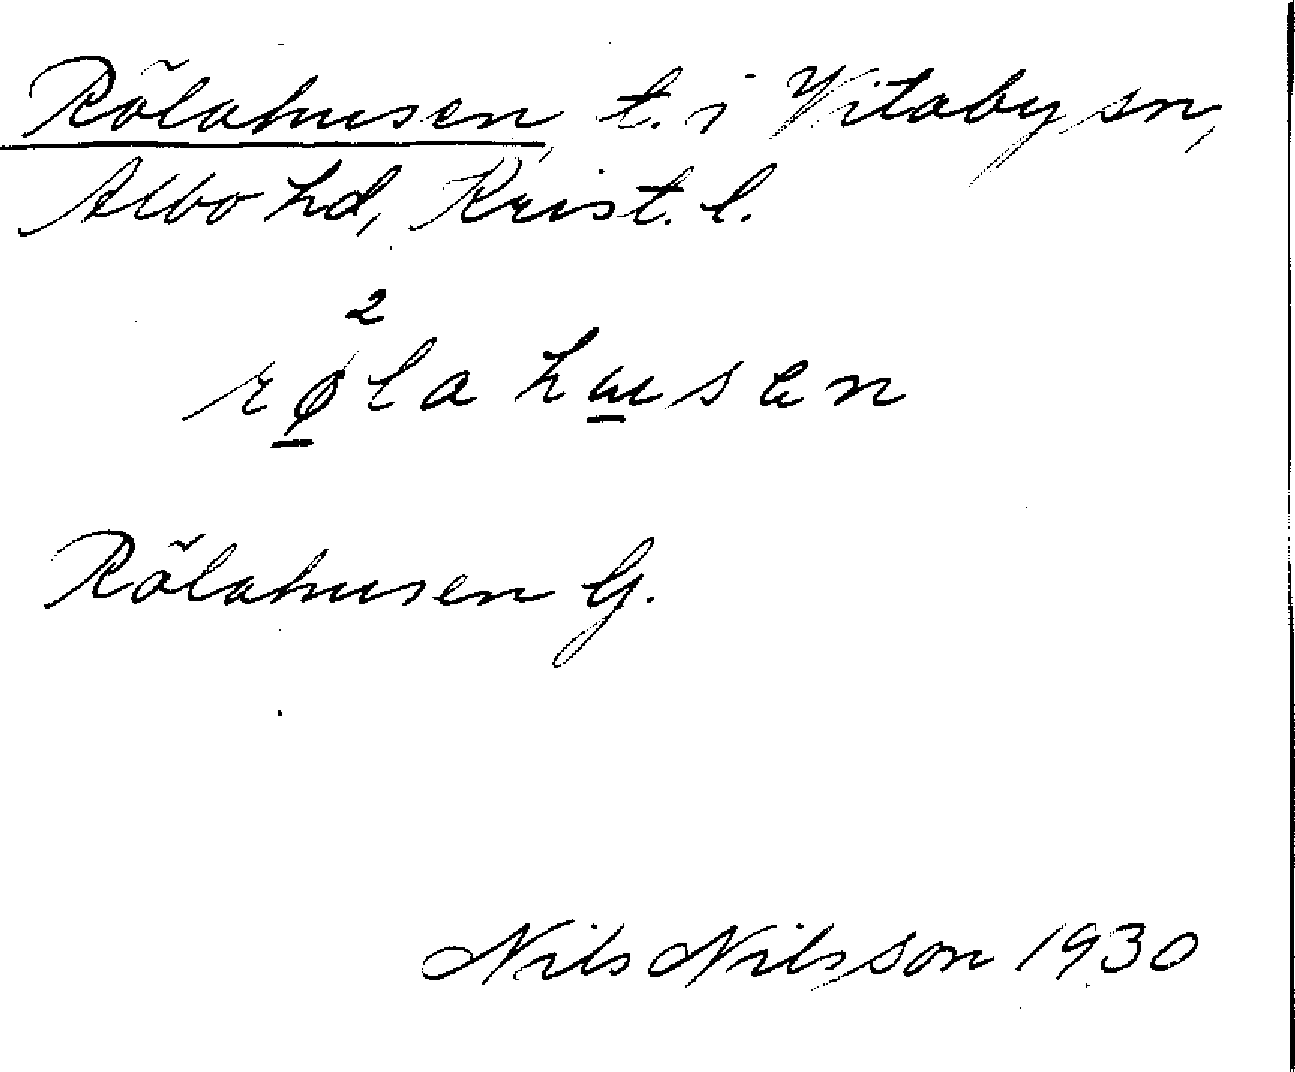 Rölahusen t. i Vitaby sn,
Albo hd, Krist. l.
2
rølahusen
Rölahusen G.
Nils Nilsson 1930